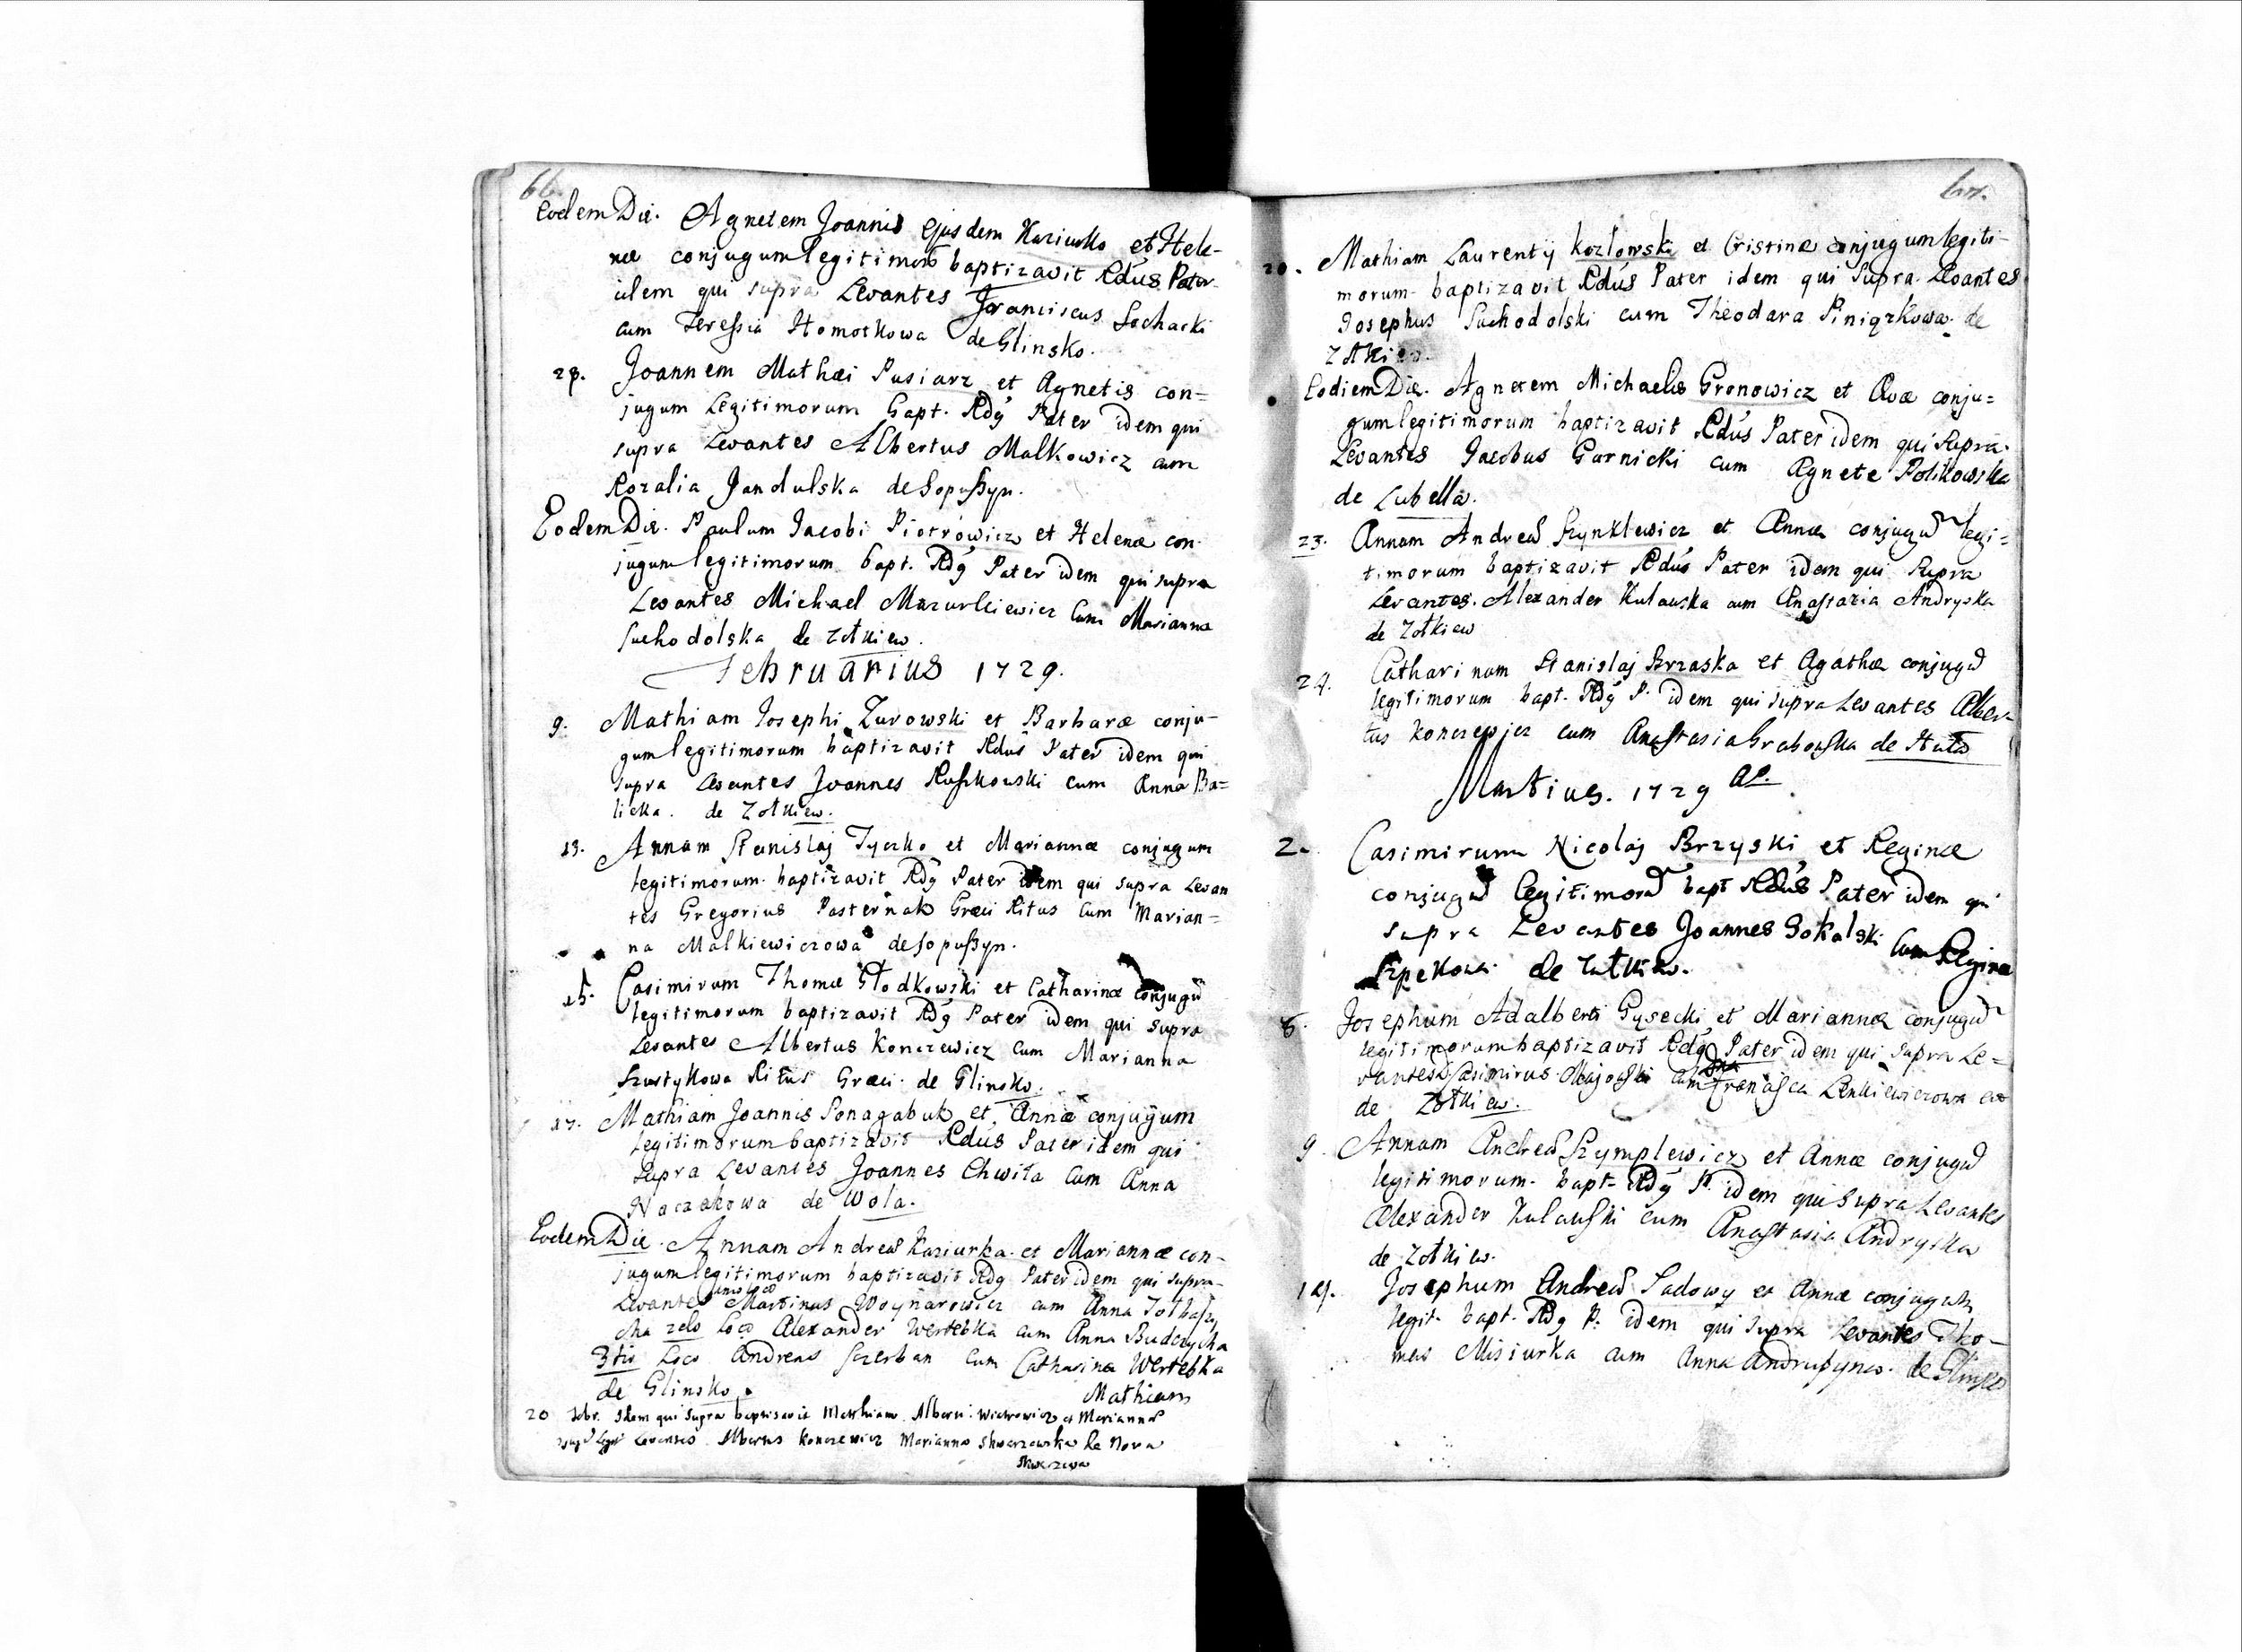 66.
Eodem Die. Agnetem Joannis Ejusdem Kaziurko et Hele-
næ conjugum legitimorū baptizavit Rdus Pater
idem qui supra Levantes Franciscus Sochacki
cum Teressia Homotkowa de Glinsko.
28. Joannem Mathæi Pusiarz et Agnetis con=
jugum Legitimorum bapt. Rdg Pater idem qui
supra Levantes Albertus Malkowicz cum
Rozalia Jandulska de Sopussyn.
Eodem Die. Paulum Jacobi Piotrowicz et Helenæ con-
jugum legitimorum bapt. Rdg Pater idem qui supra
Levantes Michael Mazurkiewicz Cum Marianna
Suchodolska de Zołkiew.
Februarius 1729.
9. Mathiam Josephi Zurowski et Barbaræ conju-
gum legitimorum baptizavit Rdus Pater idem qui
supra Levantes Joannes Ruszkowski cum Anna Ba=
licka. de Zołkiew.
13. Annam Stanislaj Tyczko et Mariannæ conjugum
legitimorum baptizavit Rdg Pater idem qui supra Levan
tes Gregorius Pasternak Græci Ritus Cum Marian=
na Malkiewiczowa de Sopussyn.
15. Casimirum Thomæ Głodkowski et Catharinæ conjugū
legitimorum baptizavit Rdg Pater idem qui supra
Levantes Albertus Konczewicz Cum Marianna
Szustykowa Ritus Græci de Glinsko.
17. Mathiam Joannis Ponagabuk et Annæ conjugum
legitimorum baptizavit Rdus Pater idem qui
supra Levantes Joannes Chwiła Cum Anna
Naczakowa de Wola.
Eodem Die. Annam Andreæ Kaziurka et Mariannæ con-
jugum legitimorum baptizavit Rdg Pater idem qui supra
Levantes Martinus Woynarowicz cum Anna
2do Loco Alexander Wertebka cum Anna
3tio Loco Andreas Szerban Cum Catharina Wertebka
de Glinsko.
Mathiam
20 Febr. Idem qui supra baptisavit Matthiam Alberti Wiatrowicz et Mariannæ
Levantes Albertus Konczewicz Marianna Skwarzewska de Nova
Skwarzewa
67.
20. Mathiam Laurentij Kozłowski et Cristinæ conjugum legiti-
morum baptizavit Rdus Pater idem qui supra Levantes
Josephus Suchodolski cum Theodara Piniązkowa de
Zołkiew.
Eodiem Die. Agnetem Michaelis Gronowicz et Evæ conju=
gum legitimorum baptizavit Rdus Pater idem qui Supra
Levantes Jacobus Garnicki cum Agnete Polikowska
de Lubella.
23. Annam Andreæ Szynklewicz et Annæ conjugū legi=
timorum baptizavit Rdus Pater idem qui supra
Levantes. Alexander Kulawska cum Anastazia Andryska
de Zołkiew
24. Catharinam Stanislaj Brzaska et Agathæ conjugū
legitimorum bapt. Rdg P. idem qui supra Levantes Alber-
tus Konczewicz cum Anastasia Grabowska de Huta
Martius. 1729 Ao.
2. Casimirum Nicolaj Brzyski et Reginæ
conjugū legitimorū bapt Rdus Pater idem qui
supra Levantes Joannes Sokalski Cum Regina
Szpekowa de Zołkiew.
8. Josephum Adalberti Gysecki et Mariannæ conjugū
legitimorum baptizavit Rdg Pater idem qui supra Le=
vantes Casimirus Majowski cum Francisca Lenkiewiczowa
de Zołkiew.
9. Annam Andreæ Szymplewicz et Annæ conjugū
legitimorum bapt. Rdg P. idem qui supra Levantes
Alexander Kulawski cum Anastasia Andryska
de Zołkiew.
14. Josephum Andreæ Sadowy et Annæ conjugum
legit. bapt. Rdg P. idem qui supra Levantes Tho-
mas Misiurka cum Anna Andrusyna. de Glinsko